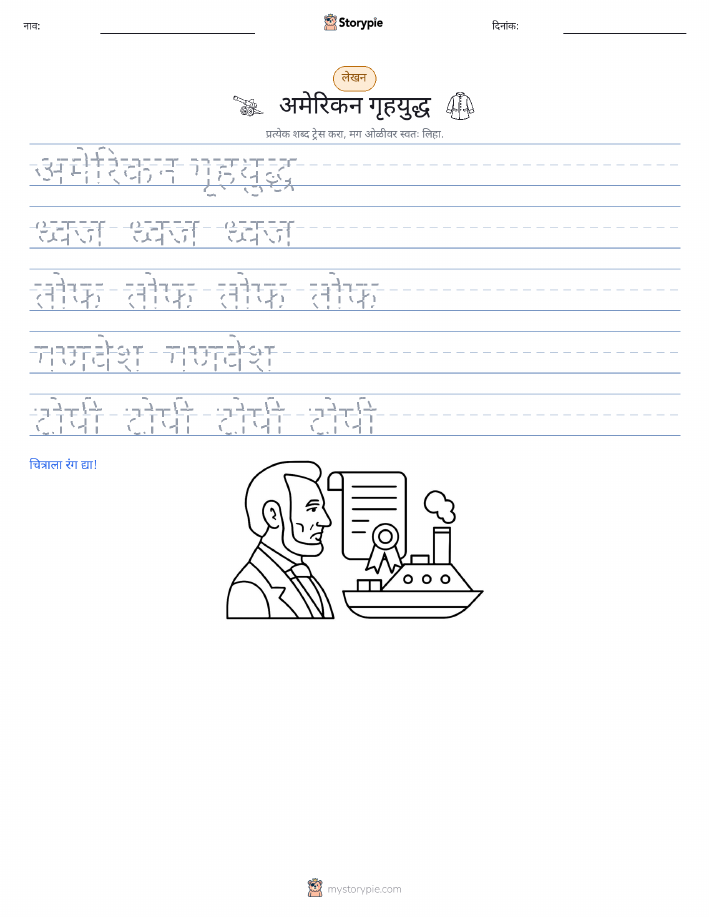 नाव:
Storypie
दिनांक:
लेखन
अमेरिकन गृहयुद्ध
प्रत्येक शब्द ट्रेस करा, मग ओळीवर स्वतः लिहा.
अमेरिकन गृहयुद्ध
ध्वज ध्वज ध्वज
तोफ तोफ तोफ तोफ
गणवेश गणवेश
टोपी टोपी टोपी टोपी
चित्राला रंग द्या!
mystorypie.com